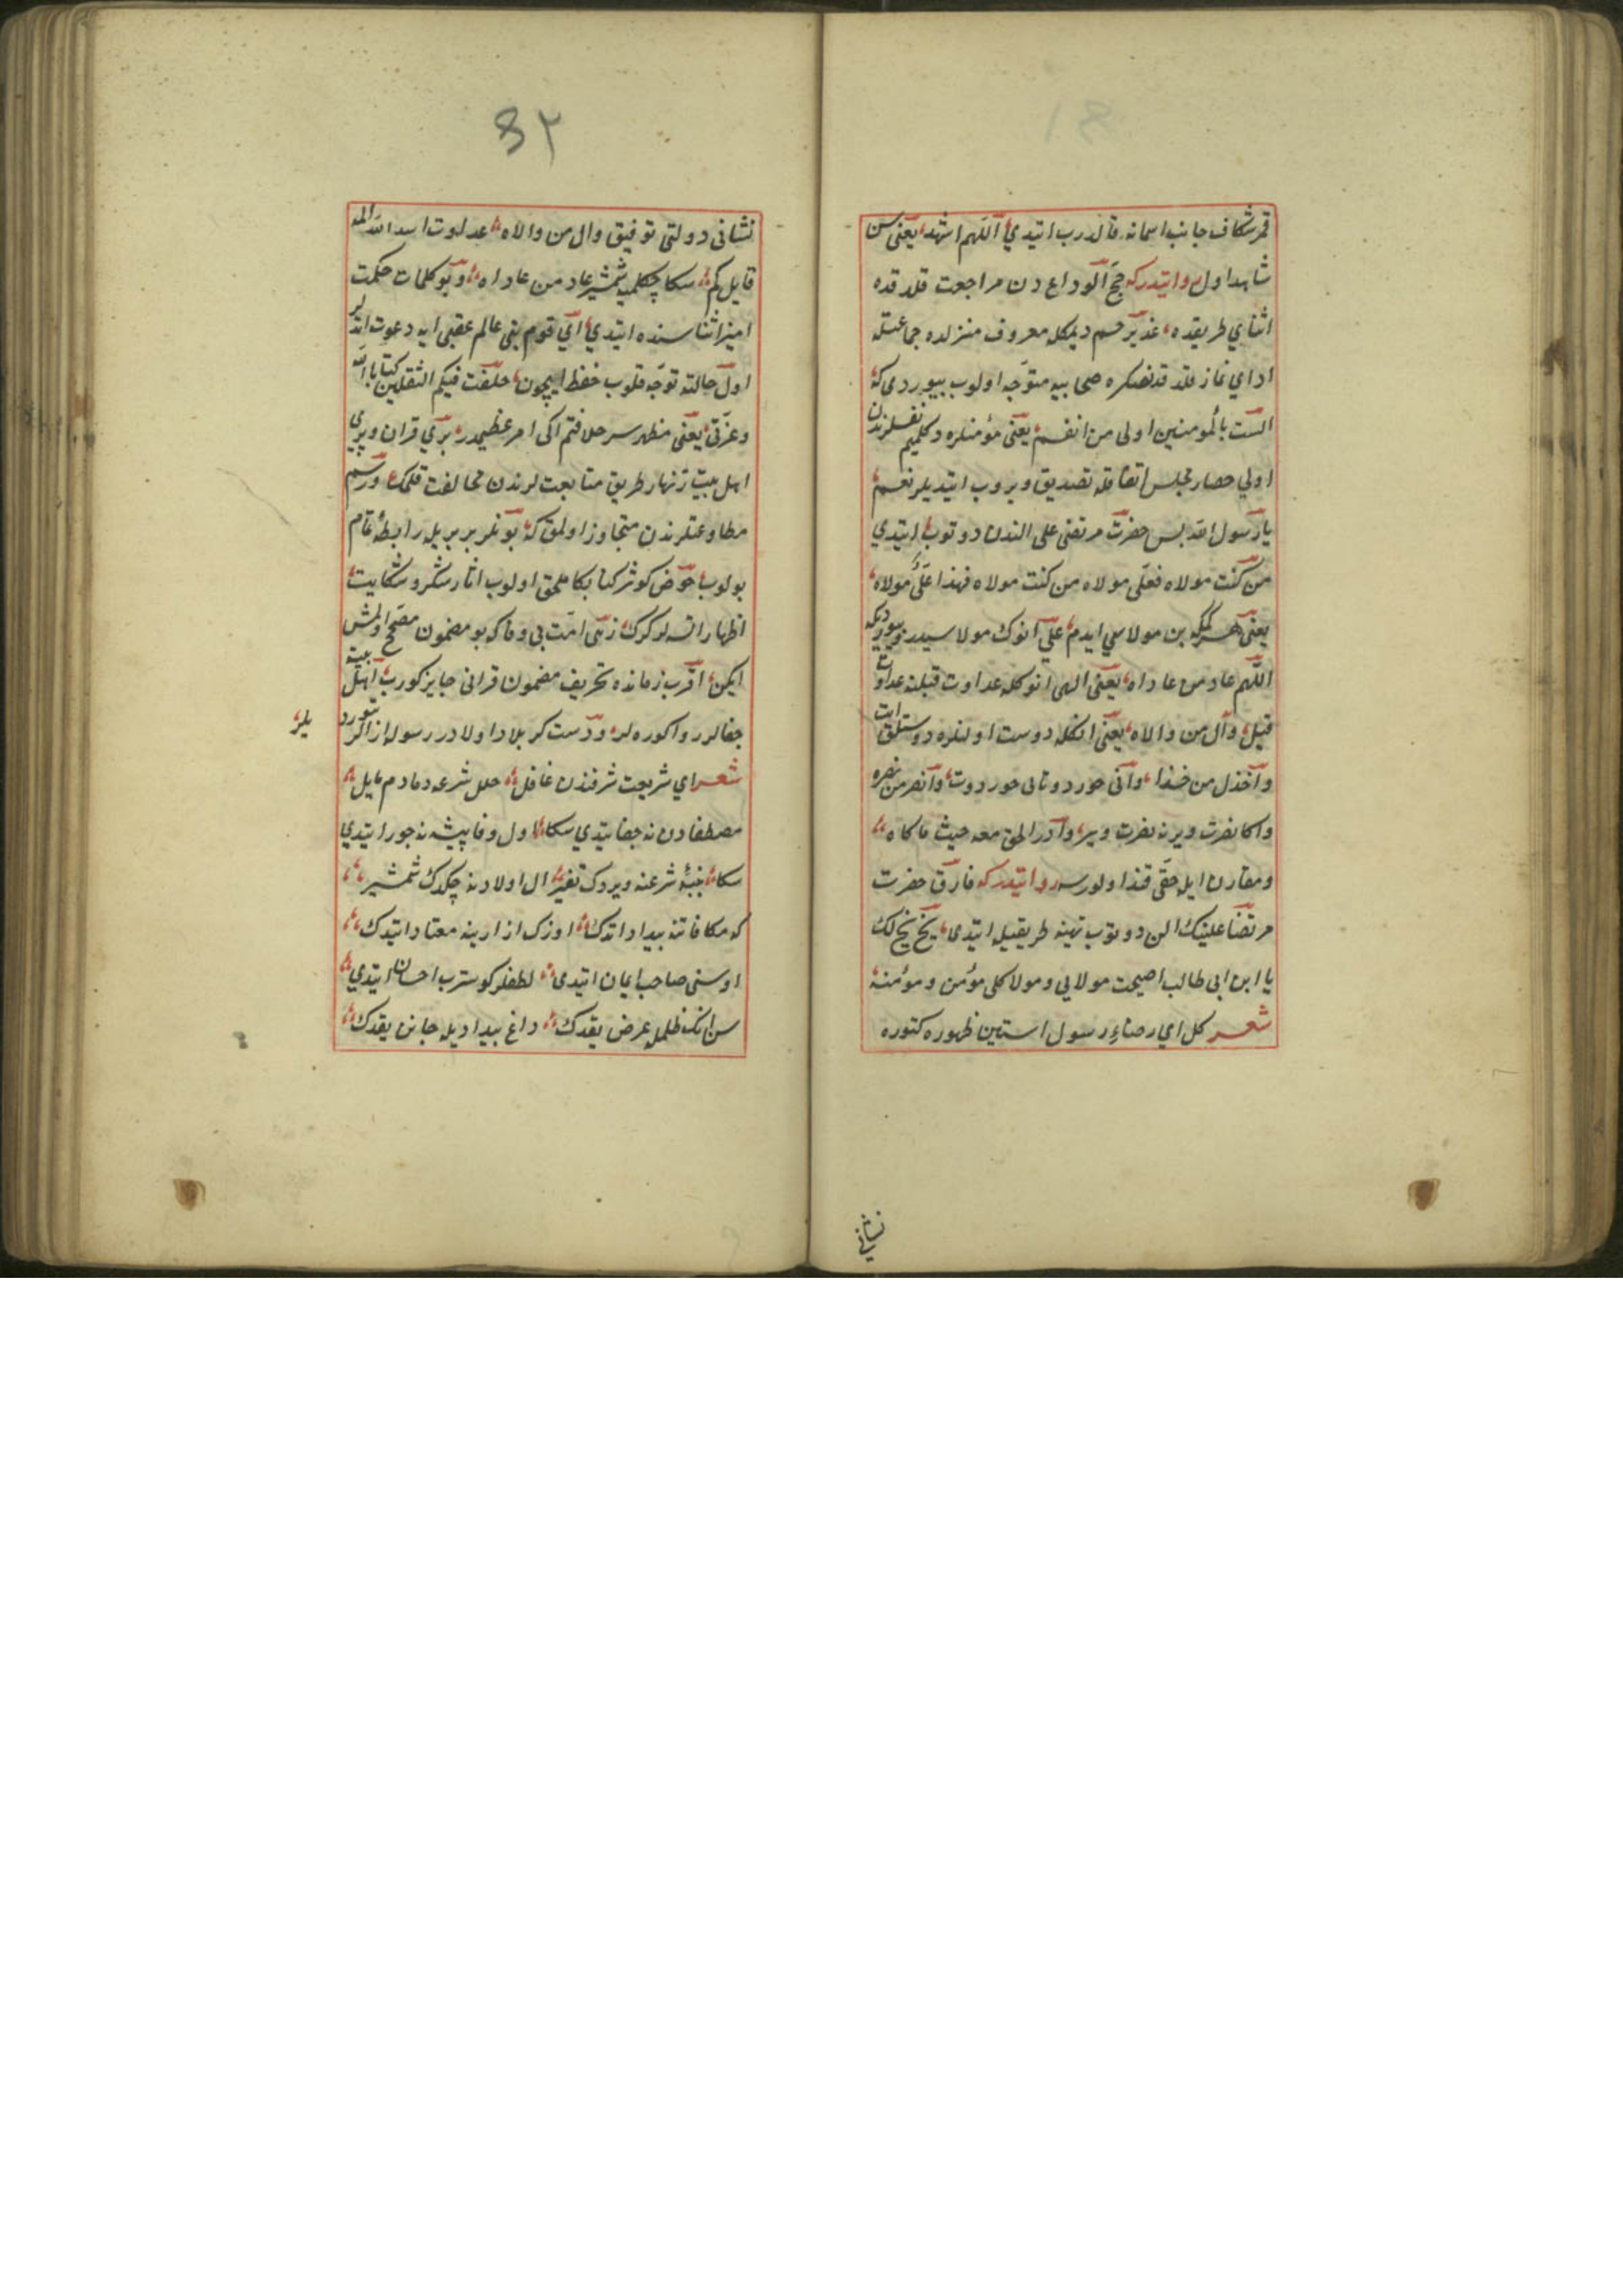 قمر شكاف جانب اسمانه قالدرب ايتدي اللهم اشهد يعنى سن
شاهد اول روايتدركه حج الوداع دن مراجعت قلدقده
اثناي طريقده غدير خم ديمكله معروف منزلده جماعتله
اداي نماز قلدقدنصكره صحابيه متوجه اولوب بيوردى كه
الست بالمومنين اولى من انفسهم يعنى مؤمنلره دكلميم نفسلرندن
اولي حصار مجلس اتفاقله تصديق ويروب ايتديلر نعم
يا رسول الله پس حضرت مرتضى على الندن دوتوب ايتدي
من كنت مولاه فعلى مولاه من كنت مولاه فهذا على مولاه
يعنى هر كمكه بن مولاسي ايدم على انوك مولاسيدر وبيورديكه
اللهم عاد من عاداه يعنى الهى انوكله عداوت قيلنه عداوت
قيل وال من والاه يعنى انكله دوست اولنلره دوستلق ايت
واخذل من خذله وانى خور دوتانى خور دوت وانصر من نصره
واكا نصرت ويرنه نصرت وير وادر الحق معه حيث ماكان
ومقارن ايله حقى قنده اولورسه روايتدركه فارق حضرت
مرتضا علينك الن دوتوب تهنيه طريقيله ايتدى بخ بخ لك
يا ابن ابى طالب اصبحت مولايى ومولا كل مؤمن ومؤمنة
شعر كل اي رضاء رسول استين ظهوره كتوره
نشانى
٣٢
نشانى دولتى توفيق وال من والاه عدلوت اسد الله المه
قايل كم سكا چكلميه شمشير عاد من عاداه وبو كلمات حكمت
اميز اثناسنده ايتدي اي قوم بنى عالم عقبى ايه دعوت ايتديلر
اول حالته توجه قلوب حفظ ايچون خلفت فيكم الثقلين كتاب الله
وعترتى يعنى مظهر سر خلافتم اكى امر عظيمدر بري قران وبري
اهل بيت زنهار طريق متابعت لرندن مخالفت قلمك ورسم
مطاوعتلرندن متجاوز اولمق كه بونلر بر بريله رابطه تمام
بولوب حوض كوثر كنا بكا ملحق اولوب اثار شكر وشكايت
اظهار اتسه لر كرك زهى امت بى وفا كه بو مضمون مصحح اولمش
ايكن اقرب زمانده تحريف مضمون قرانى جايز كورب اهل بيته
جفالر روا كوره لر ودشت كربلادا اولادر رسوله ازالر يتوردـ
يلر
شعر اي شريعت شرفندن غافل خلل شرعه دمادم مايل
مصطفادن نه جفا يتدي سكا اول وفا پيشه نه جور ايتدي
سكا نيجه شرعنه ويردك تغير ال اولادنه چكدك شمشير
كه مكافاتنه بيداد اتدك اوزك ازارينه معتاد ايتدك
او سنى صاحب ايمان ايتدى لطفلر كوسترب احسان ايتدي
سن انك ظلمله عرض يقدك داغ بيداديله جانن يقدك